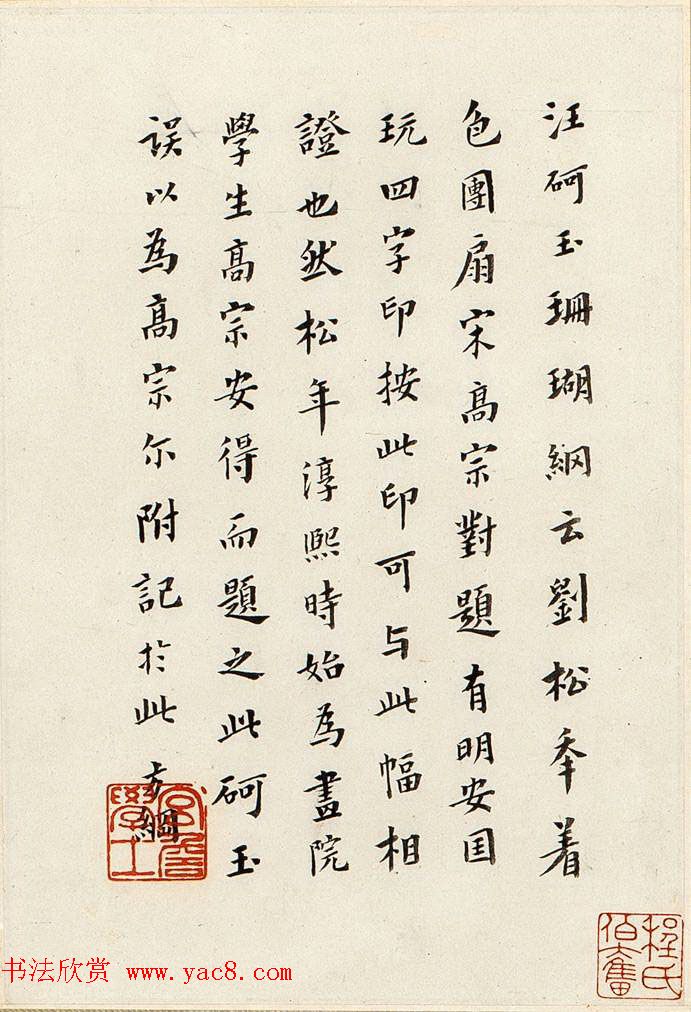 汪砢玉珊瑚綱云劉松年着
色團扇宋高宗對題有明安国
玩四字印按此印可与此幅相
證也然松年淳熙時始為畫院
學生高宗安得而題之此砢玉
誤以為高宗尔附記於此 方綱
程氏
伯奮
书法欣赏 www.yac8.com